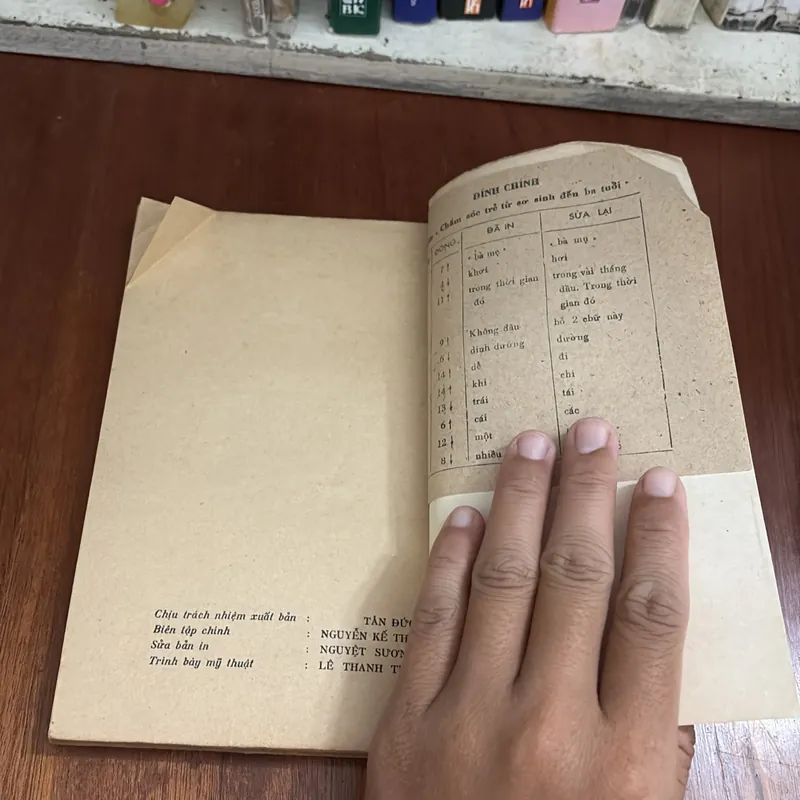 Chịu trách nhiệm xuất bản :
TÂN ĐỨC
Biên tập chính : NGUYỄN KẾ
Sửa bản in : NGUYỆT
Trình bày mỹ thuật : LÊ THANH
ĐÍNH CHÍNH
• Chăm sóc trẻ từ sơ sinh đến ba tuổi •
DÒNG ĐÃ IN SỬA LẠI
7↑ « bà mẹ » « bà mụ »
khơi hơi
trong thời gian trong vài tháng
đó đầu. Trong thời
gian đó
9↑ Không đâu bỏ 2 chữ này
6↓ dịnh dưỡng dưỡng
14↑ dễ đi
14↑ khi chi
13↓ trái tái
6↑ cái các
12↓ một
8↓ nhiều